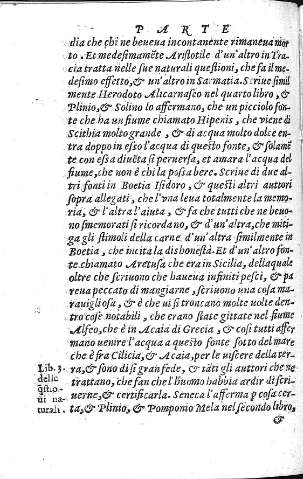 PARTE
dia che chi ne beueua incontanente rimaneua mor
to. Et medesimamẽte Aristotile d'un'altro in Tra
cia tratta nelle sue naturali questioni, che fa il me-
desimo effetto, & un'altro in Sarmatia. Scriue simil
mente Herodoto Alicarnasco nel quarto libro, &
Plinio, & Solino lo affermano, che un picciolo fon-
te che ha un fiume chiamato Hipenis, che viene di
Scithia molto grande, & di acqua molto dolce en-
tra doppo in esso l'acqua di questo fonte, & solamẽ
te con essa diuẽta si peruersa, et amara l'acqua del
fiume, che non è chi la possa bere. Scriue di due al-
tri fonti in Boetia Isidoro, & questi altri autori
sopra allegati, che l'vna leua totalmente la memo-
ria, & l'altra l'aiuta, & fa che tutti che ne beuo-
no smemorati si ricordano, & d'un'altra, che miti-
ga gli stimoli della carne d'un'altra similmente in
Boetia, che incita la dishonestà. Et d'un'altro fon-
te chiamato Aretusa che era in Sicilia, della quale
oltre che scriuono che haueua infiniti pesci, & pa
reua peccato di mangiarne, scriuono una cosa ma-
rauigliosa, & è che ui si trouano molte uolte den-
tro cose notabili, che erano state gittate nel fiume
Alfeo, che è in Acaia di Grecia, & così tutti affer
mano uenire l'acqua a questo fonte sotto del mare
che è fra Cilicia, & Acaia, per le uiscere della ter-
Lib. 3. ra, & sono di si gran fede, & tãti gli autori che ne
delle trattano, che fan che l'huomo habbia ardir di scri-
q̃st. o- uerne, & certificarla. Seneca l'afferma p cosa cer-
ni na-
turali. ta, & Plinio, & Pomponio Mela nel secondo libro,
&